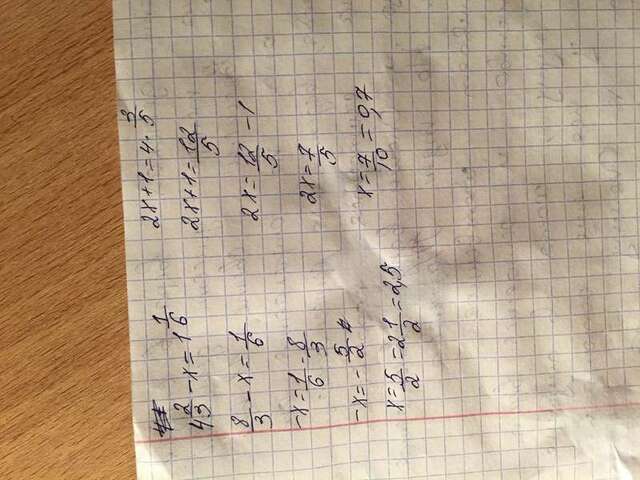 4 2/3 - x = 1 1/6
8/3 - x = 1/6
-x = 1/6 - 8/3
-x = - 5/2
x = 5/2 = 2 1/2 = 2,5
2x+1 = 4 · 3/5
2x+1 = 12/5
2x = 12/5 - 1
2x = 7/5
x = 7/10 = 0,7